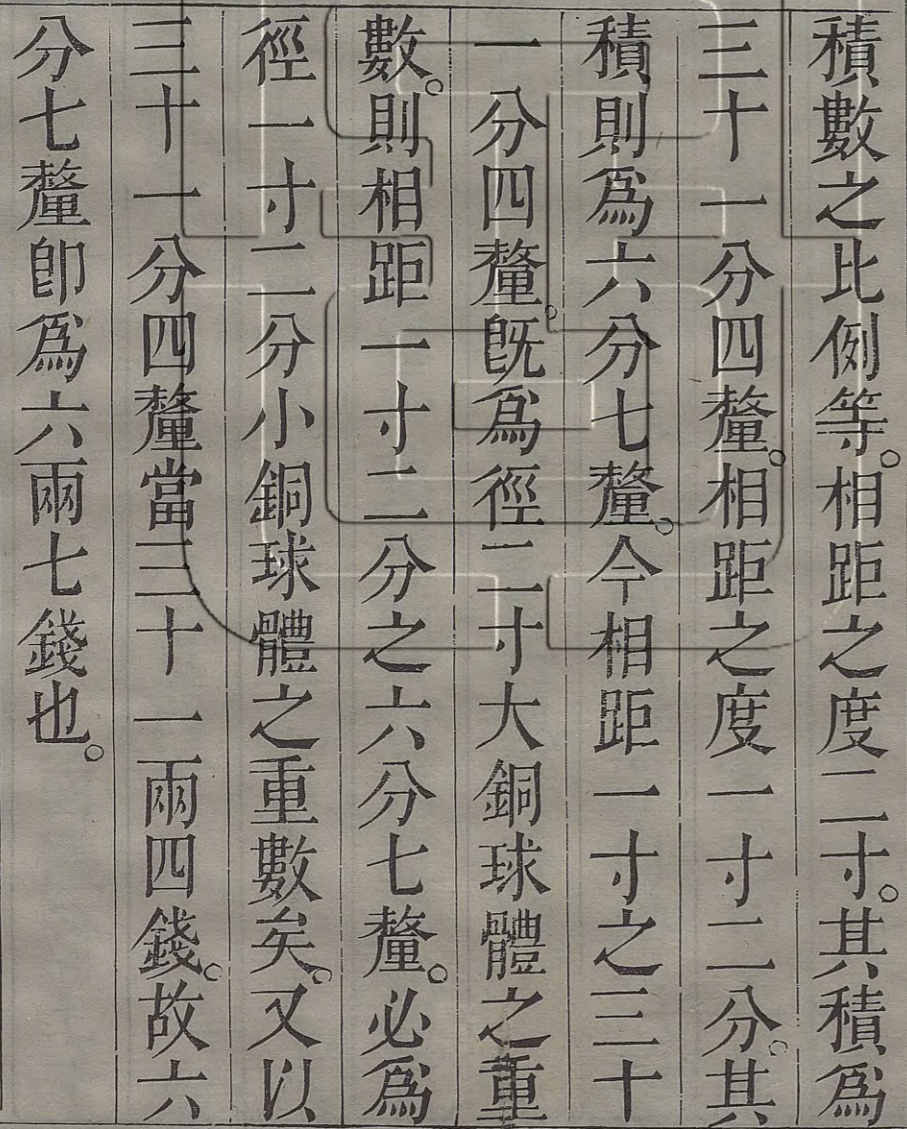 積數之比例等。相距之度二寸。其積爲
三十一分四釐。相距之度一寸二分。其
積則爲六分七釐。今相距一寸之三十
一分四釐。旣爲徑二寸大銅球體之重
數。則相距一寸二分之六分七釐。必爲
徑一寸二分小銅球體之重數矣。又以
三十一分四釐當三十一兩四錢。故六
分七釐卽爲六兩七錢也。